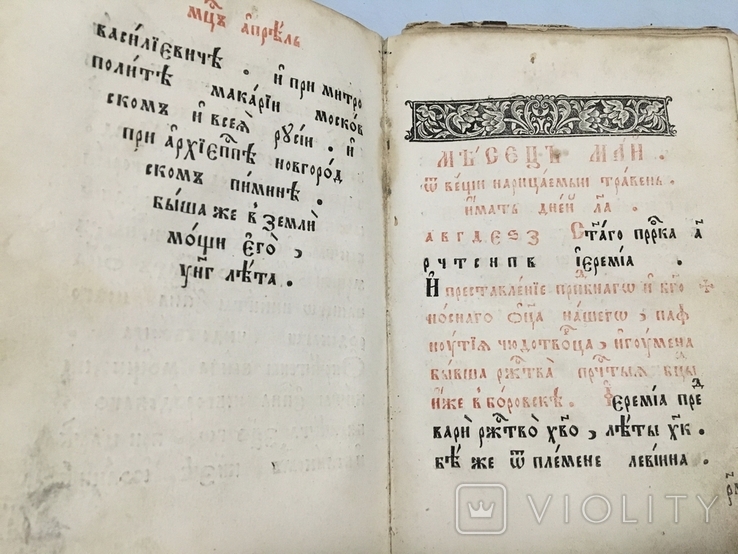 мцⷭ҇ъ а҆прѣль
василїевиче . и҆ при митро
полите макарїи москов
скомъ и҆ всеѧ̀ рꙋсїи . и҆
при а҆рхїепⷭ҇пѣ новгород
скомъ пи́мине .
бы́ша же в землѝ
мо́щи є҆гѡ̀ ,
ун҃г лѣта .
мѣ́сецъ маи .
ѿ ве́щи нарица́емыи тра́вень .
и҆́мать дне́й ла҃
а в г д е ѕ з Ст҃а́гѡ прⷪ҇рка
р ч т с н п в і҆еремі́а
И҆ преставле́нїе прпⷣбнагѡ и҆ бг҃о
но́снагѡ ѻ҆тца̀ на́шегѡ , паф
нꙋ́тїѧ чюдотво́рца , и҆гꙋ́мена
бы́вша ржⷭ҇тва̀ прчⷭ҇тыѧ бцⷣы
и҆́же в бо́ровскѣ . І҆еремі́а пред
варѝ ржⷭ҇тво̀ хв҃о , лѣ́ты ух҃к .
бѣ́ же ѿ пле́мене леві́ина .
VIOLITY